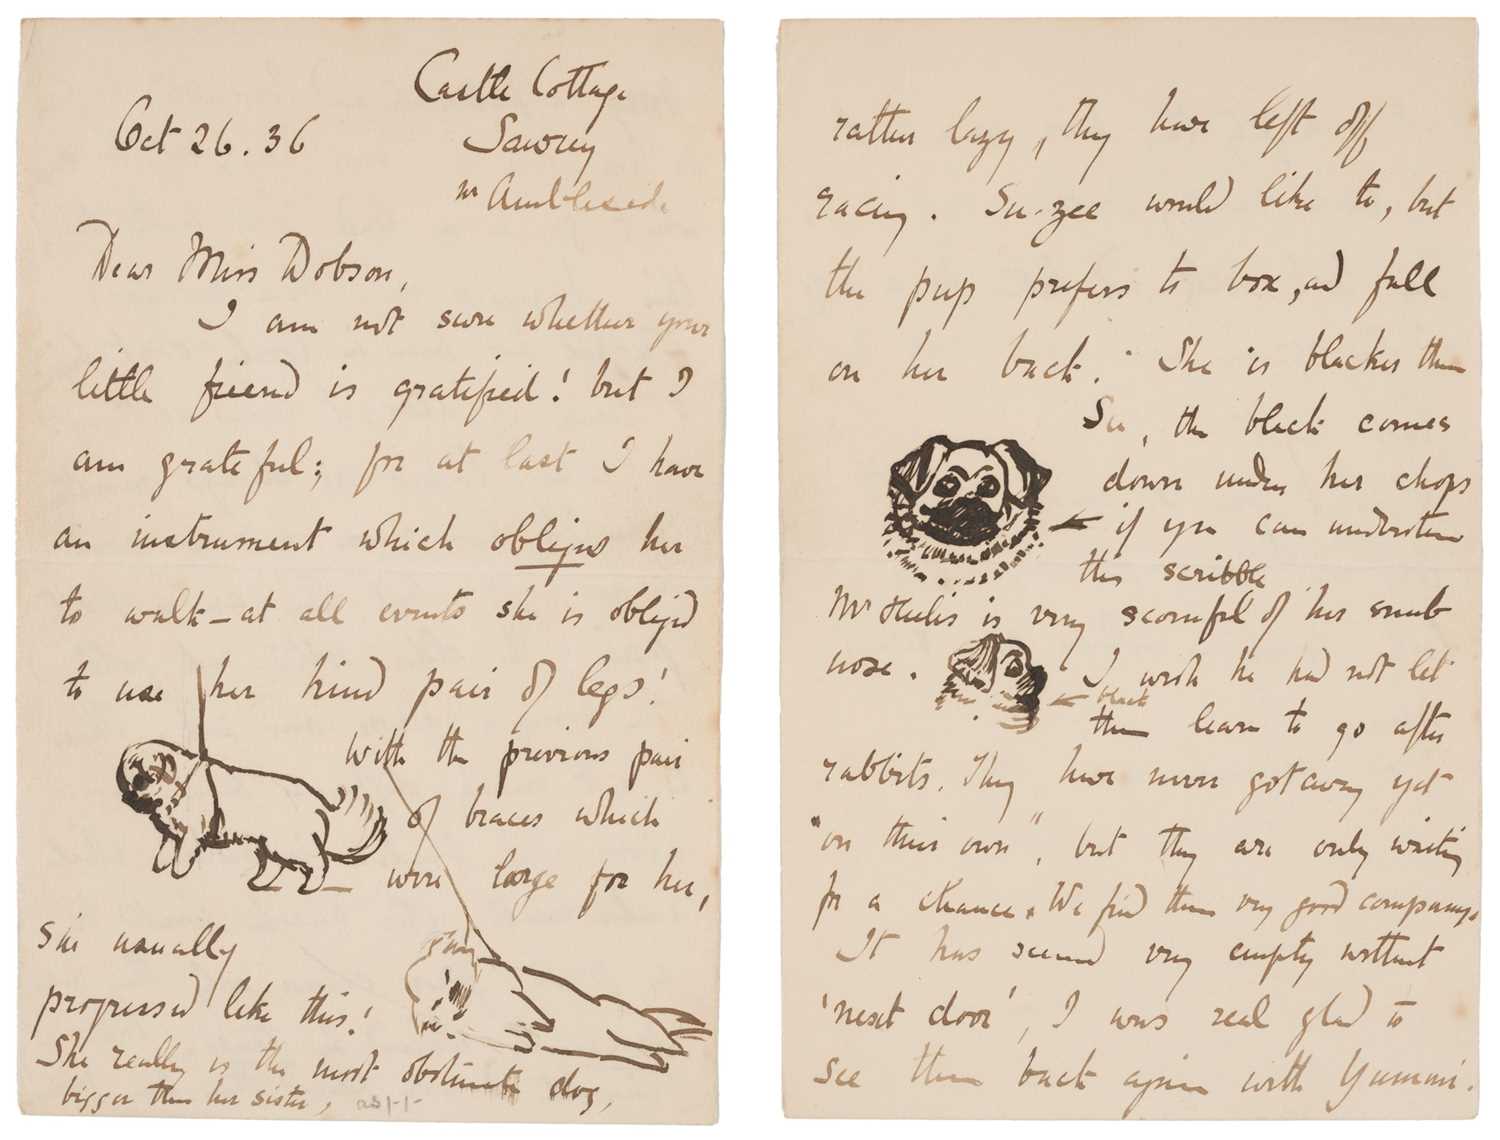 Castle Cottage
Oct 26. 36
Sawrey
nr Ambleside
Dear Miss Dobson,
I am not sure whether your
little friend is gratified! but I
am grateful; for at last I have
an instrument which obliges her
to walk – at all events she is oblig'd
to use her hind pair of legs!
With the previous pair
of braces which
were large for her,
she usually
progressed like this!
She really is the most obstinate dog,
bigger than her sister,
rather lazy, they have left off
racing. Su-zee would like to, but
the pup prefers to box, and fall
on her back. She is blacker than
Su, the black comes
down under her chops
if you can understand
this scribble
Mr Heelis is very scornful of her snub
nose. I wish he had not let
black
them learn to go after
rabbits. They have never got away yet
"on their own", but they are only waiting
for a chance. We find them very good company.
It has seemed very empty without
'next door', I was real glad to
see them back again with Yummi.